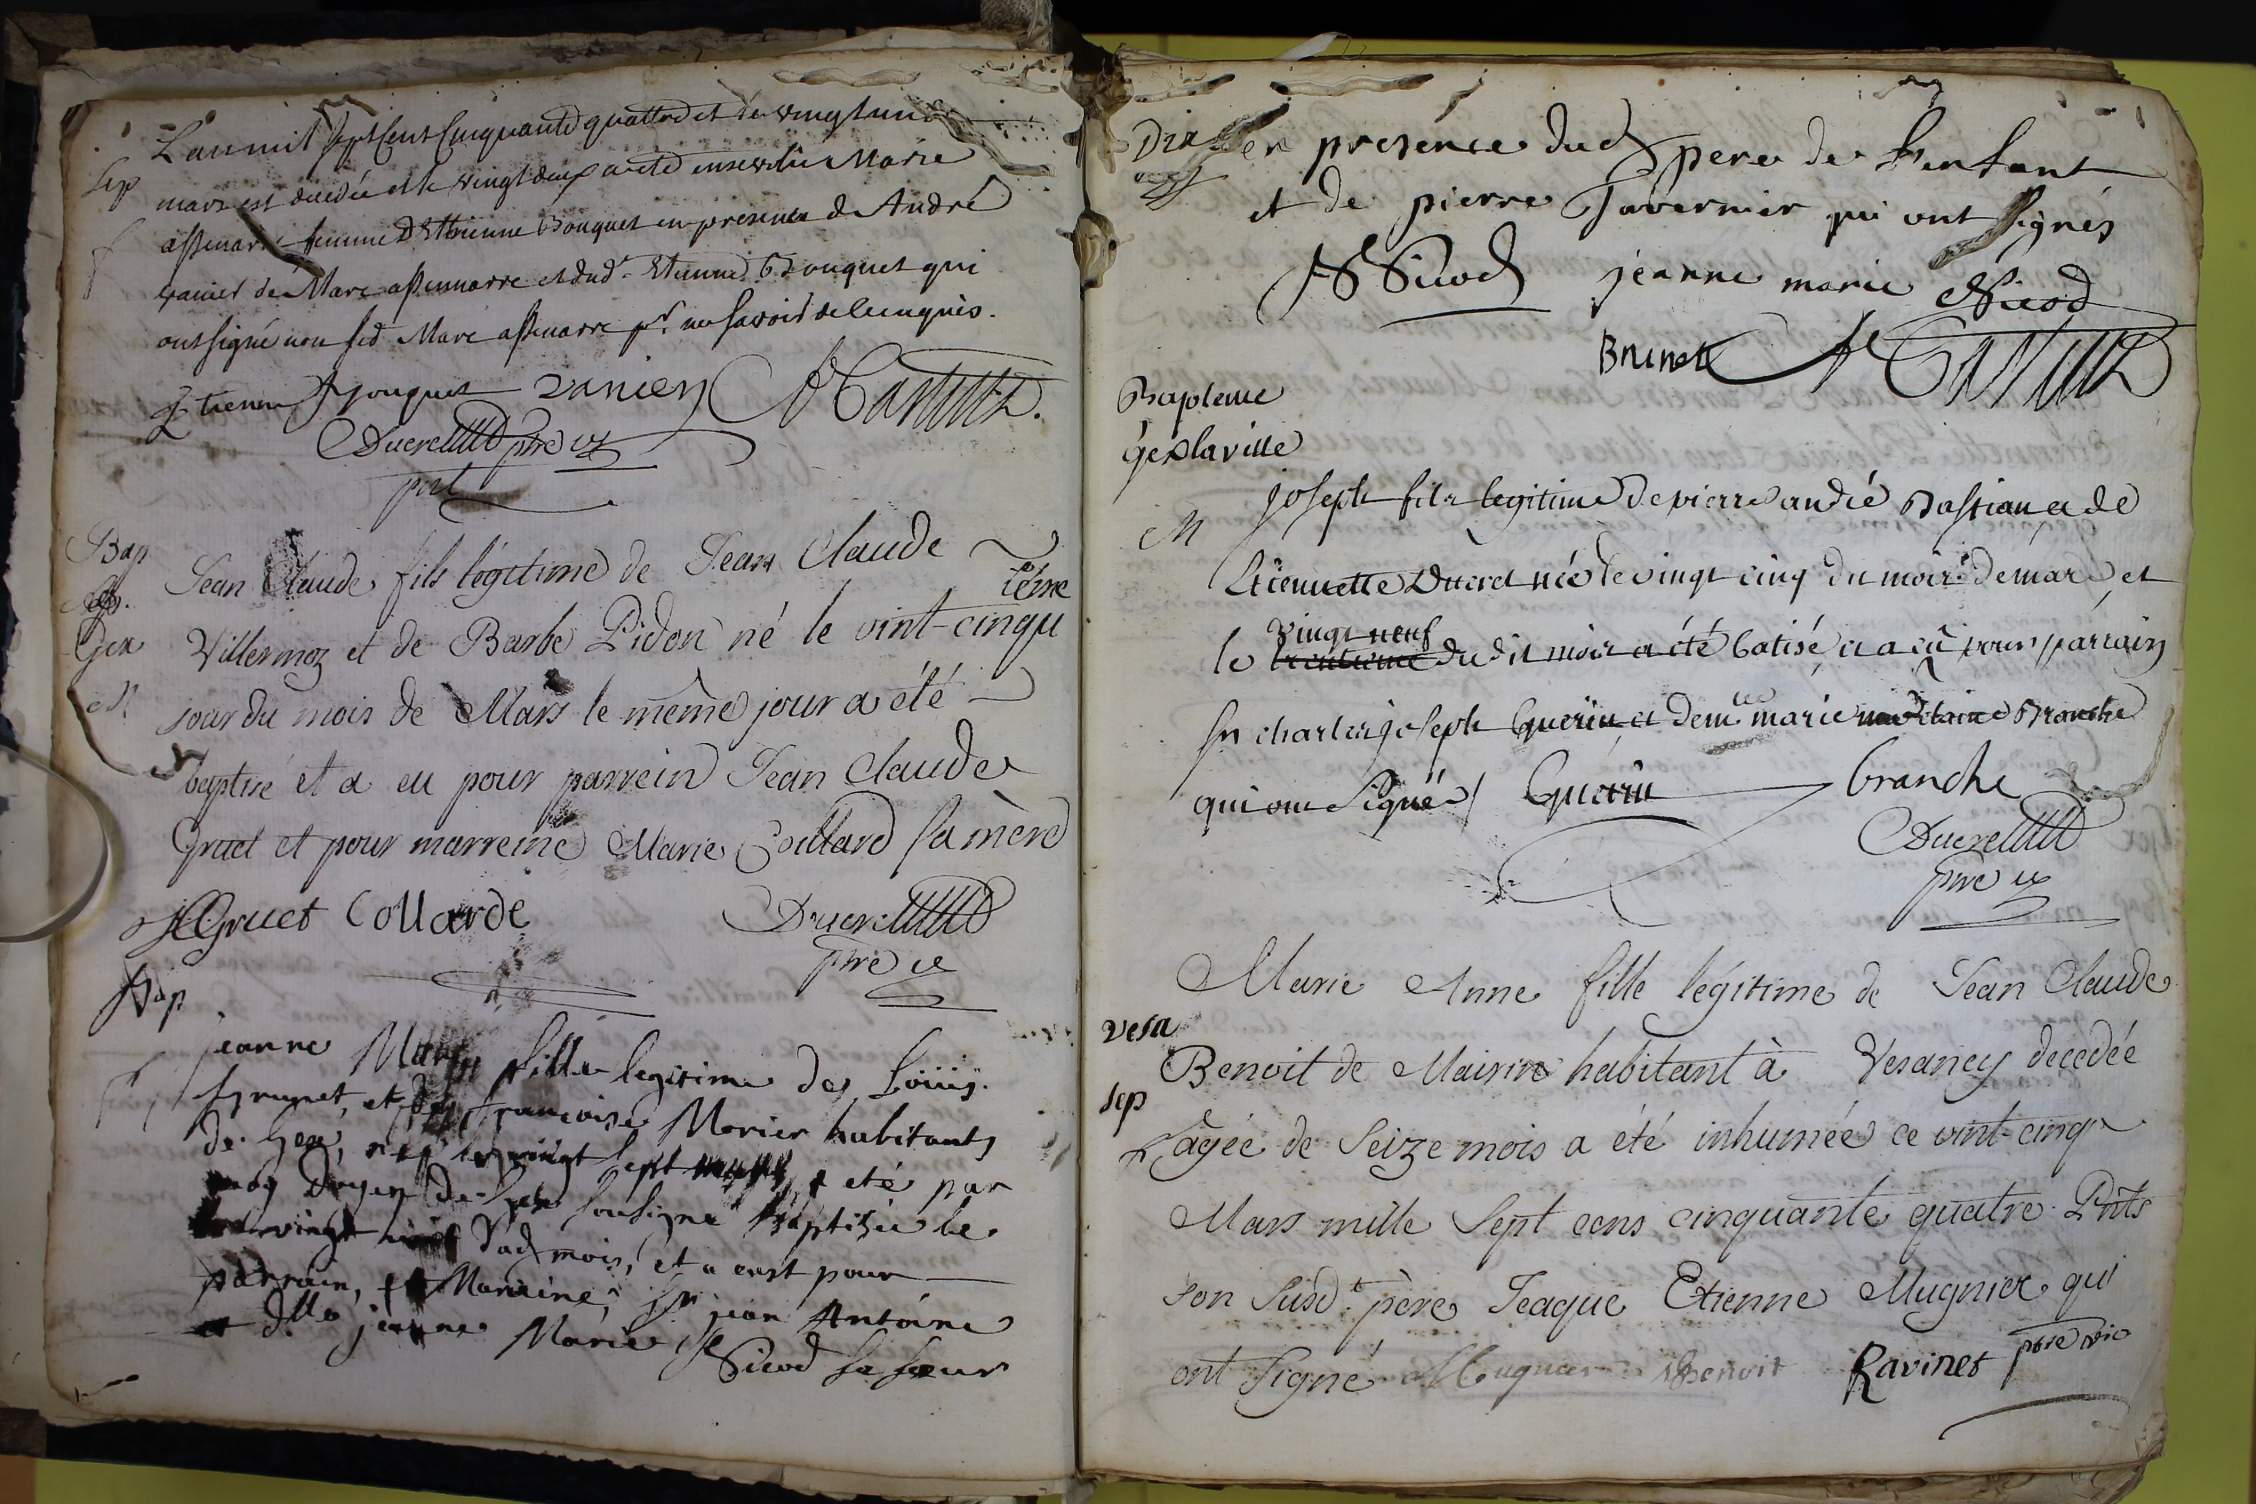 L'an mil sept Cent Cinquante quattre et le vingt un
Sep
mars est decedée et le vingt deux a été ensevelie Marie
assenarre femme D'Ettienne Bouquet en presence de André
vanier de Marc assennarre et dud.t Etienne Bouquet qui
ont signé non led Marc assenarre pr. ne savoir de ce enquis.
Etienne Bouquet vanier
Ducret ptre vic
Bap
Jean Claude fils légitime de Jean Claude
Gex
Villermoz et de Barbe Pidon né le vint-cinqu
ième
M
jour du mois de Mars le même jour a été
baptisé et a eu pour parrein Jean Claude
Gruet et pour marreine Marie Collard sa mère
JC Gruet Collarde Ducret
ptre vic
Bap
jeanne Marie fille legitime de Loüis
Brunet, et de françoise Morier habitants
de Gex, née le vingt sept a eté par
moy Doyen de Gex sousigné baptizée le
vingt dud mois, et a eust pour
parrain, et Maraine, Sr jean Antoine
et dlle jeanne Marie Sicod sa sœur
en presence dud pere de L'enfant
et de pierre Tavernier qui ont signés
Sicod jeanne marie Sicod
Brunet
Bapteme
gex la ville
joseph fils legitime de pierre andré Bastian et de
M
Etiennette Ducret née le vingt cinq du mois de mars, et
vingt neuf
le trentieme du dit mois a été batisé, et a eû pour parrain
Sr charles joseph Guerin et demlle marie Branche
qui ont Signé / Guerin branche
Ducret
ptre vic
Marie Anne fille légitime de Jean Claude
vesa
Benoit de Mairin habitant à Vesancy decedée
sep
âgée de Seize mois a été inhumée ce vint-cinq
Mars mille Sept cens cinquante quatre. Pnts
son Susd.t père Jeaque Etienne Mugnier qui
ont Signé Mugnier Benoit Ravinet ptre vic